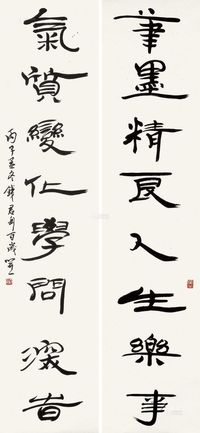 筆墨精良人生樂事
氣質變化學問深旹
丙子孟冬錢君匋